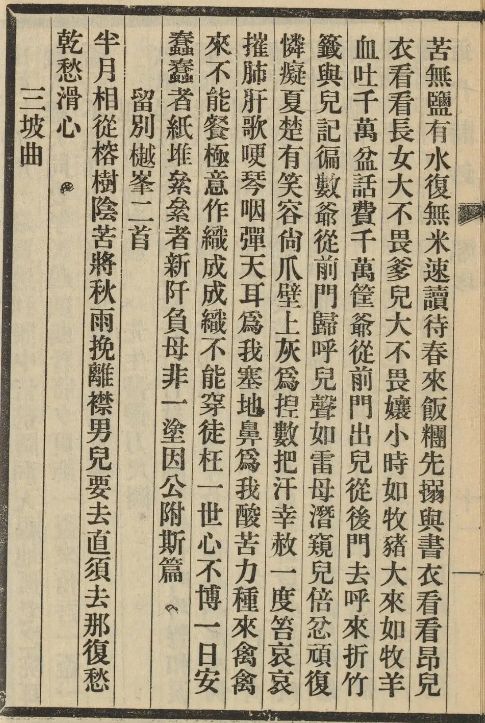 苦無鹽有水復無米速讀待春來飯糰先搦與書衣看看昂兒
衣看看長女大不畏爹兒大不畏孃小時如牧豬大來如牧羊
血吐千萬盆話費千萬筐爺從前門出兒從後門去呼來折竹
籤與兒記徧數爺從前門歸呼兒聲如雷母潛窺兒倍忿頑復
憐癡夏楚有笑容尙爪壁上灰爲捏數把汗幸赦一度笞哀哀
摧肺肝歌哽琴咽彈天耳爲我塞地鼻爲我酸苦力種來禽禽
來不能餐極意作織成成織不能穿徒枉一世心不博一日安
蠢蠢者紙堆纍纍者新阡負母非一塗因公附斯篇
留別樾峯二首
半月相從榕樹陰苦將秋雨挽離襟男兒要去直須去那復愁
乾愁滑心
三坡曲